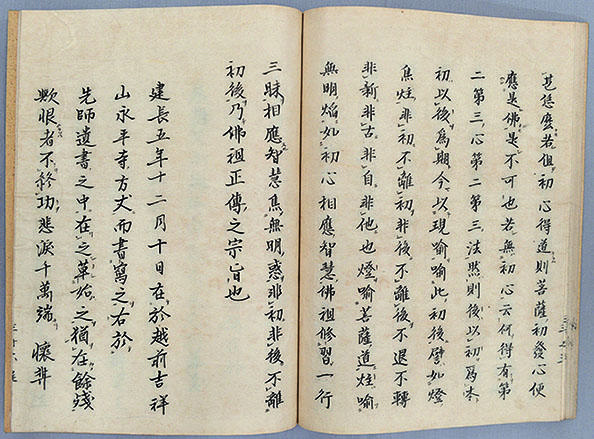 怎麼若但初心得道則菩薩初發心便
應是佛是不可也若無初心云何得有第
二第三心第二第三法然則後以初爲本
初以後爲期今以現喩喩此初後譬如燈
焦炷非初不離初非後不離後不退不轉
非新非古非自非他也燈喩菩薩道炷喩
無明焰如初心相應智慧佛祖修習一行
三昧相應智慧焦無明惑非初非後不離
初後乃佛祖正傳之宗旨也
建長五年十二月十日在於越前吉祥
山永平寺方丈而書寫之右於
先師遺書之中在之草始之猶在餘殘
歟恨者不終功悲涙千萬端 懷弉